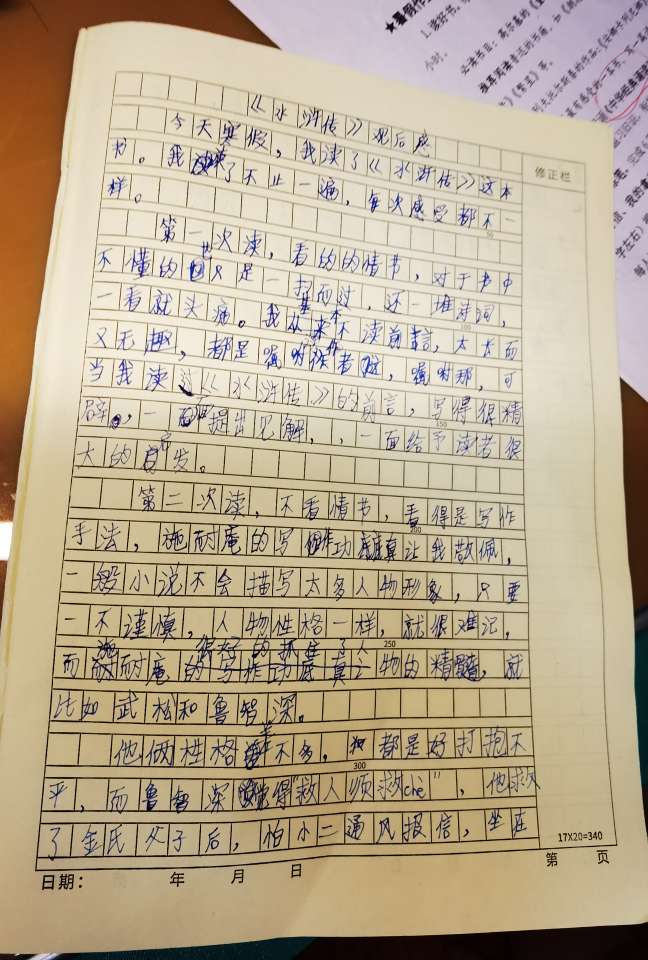 《水浒传》观后感
今天寒假，我读了《水浒传》这本
书。我读了不止一遍，每次感受都不一
样。
第一次读，看的的情节，对于书中
不懂的也只是一扫而过，还一堆诗词，
一看就头痛。我从来不读前言，太太而
又无趣，都是嘱咐作者啦，嘱咐那，可
当我读过《水浒传》的前言，写得很精
辟，一面提出见解，，一面给予读者很
大的启发。
第二次读，不看情节，看得是写作
手法，施耐庵的写作功底真让我敬佩，
一般小说不会描写太多人物形象，只要
一不谨慎，人物性格一样，就很难记，
而施耐庵很好的抓住了人物的精髓，就
比如武松和鲁智深。
他俩性格差不多，都是好打抱不
平，而鲁智深觉得"救人须救chè"，他救
了金氏父子后，怕小二通风报信，坐在
修正栏
100
150
200
250
300
17X20=340
日期： 年 月 日
第 页
★暑假作
1.读好书。
小时。